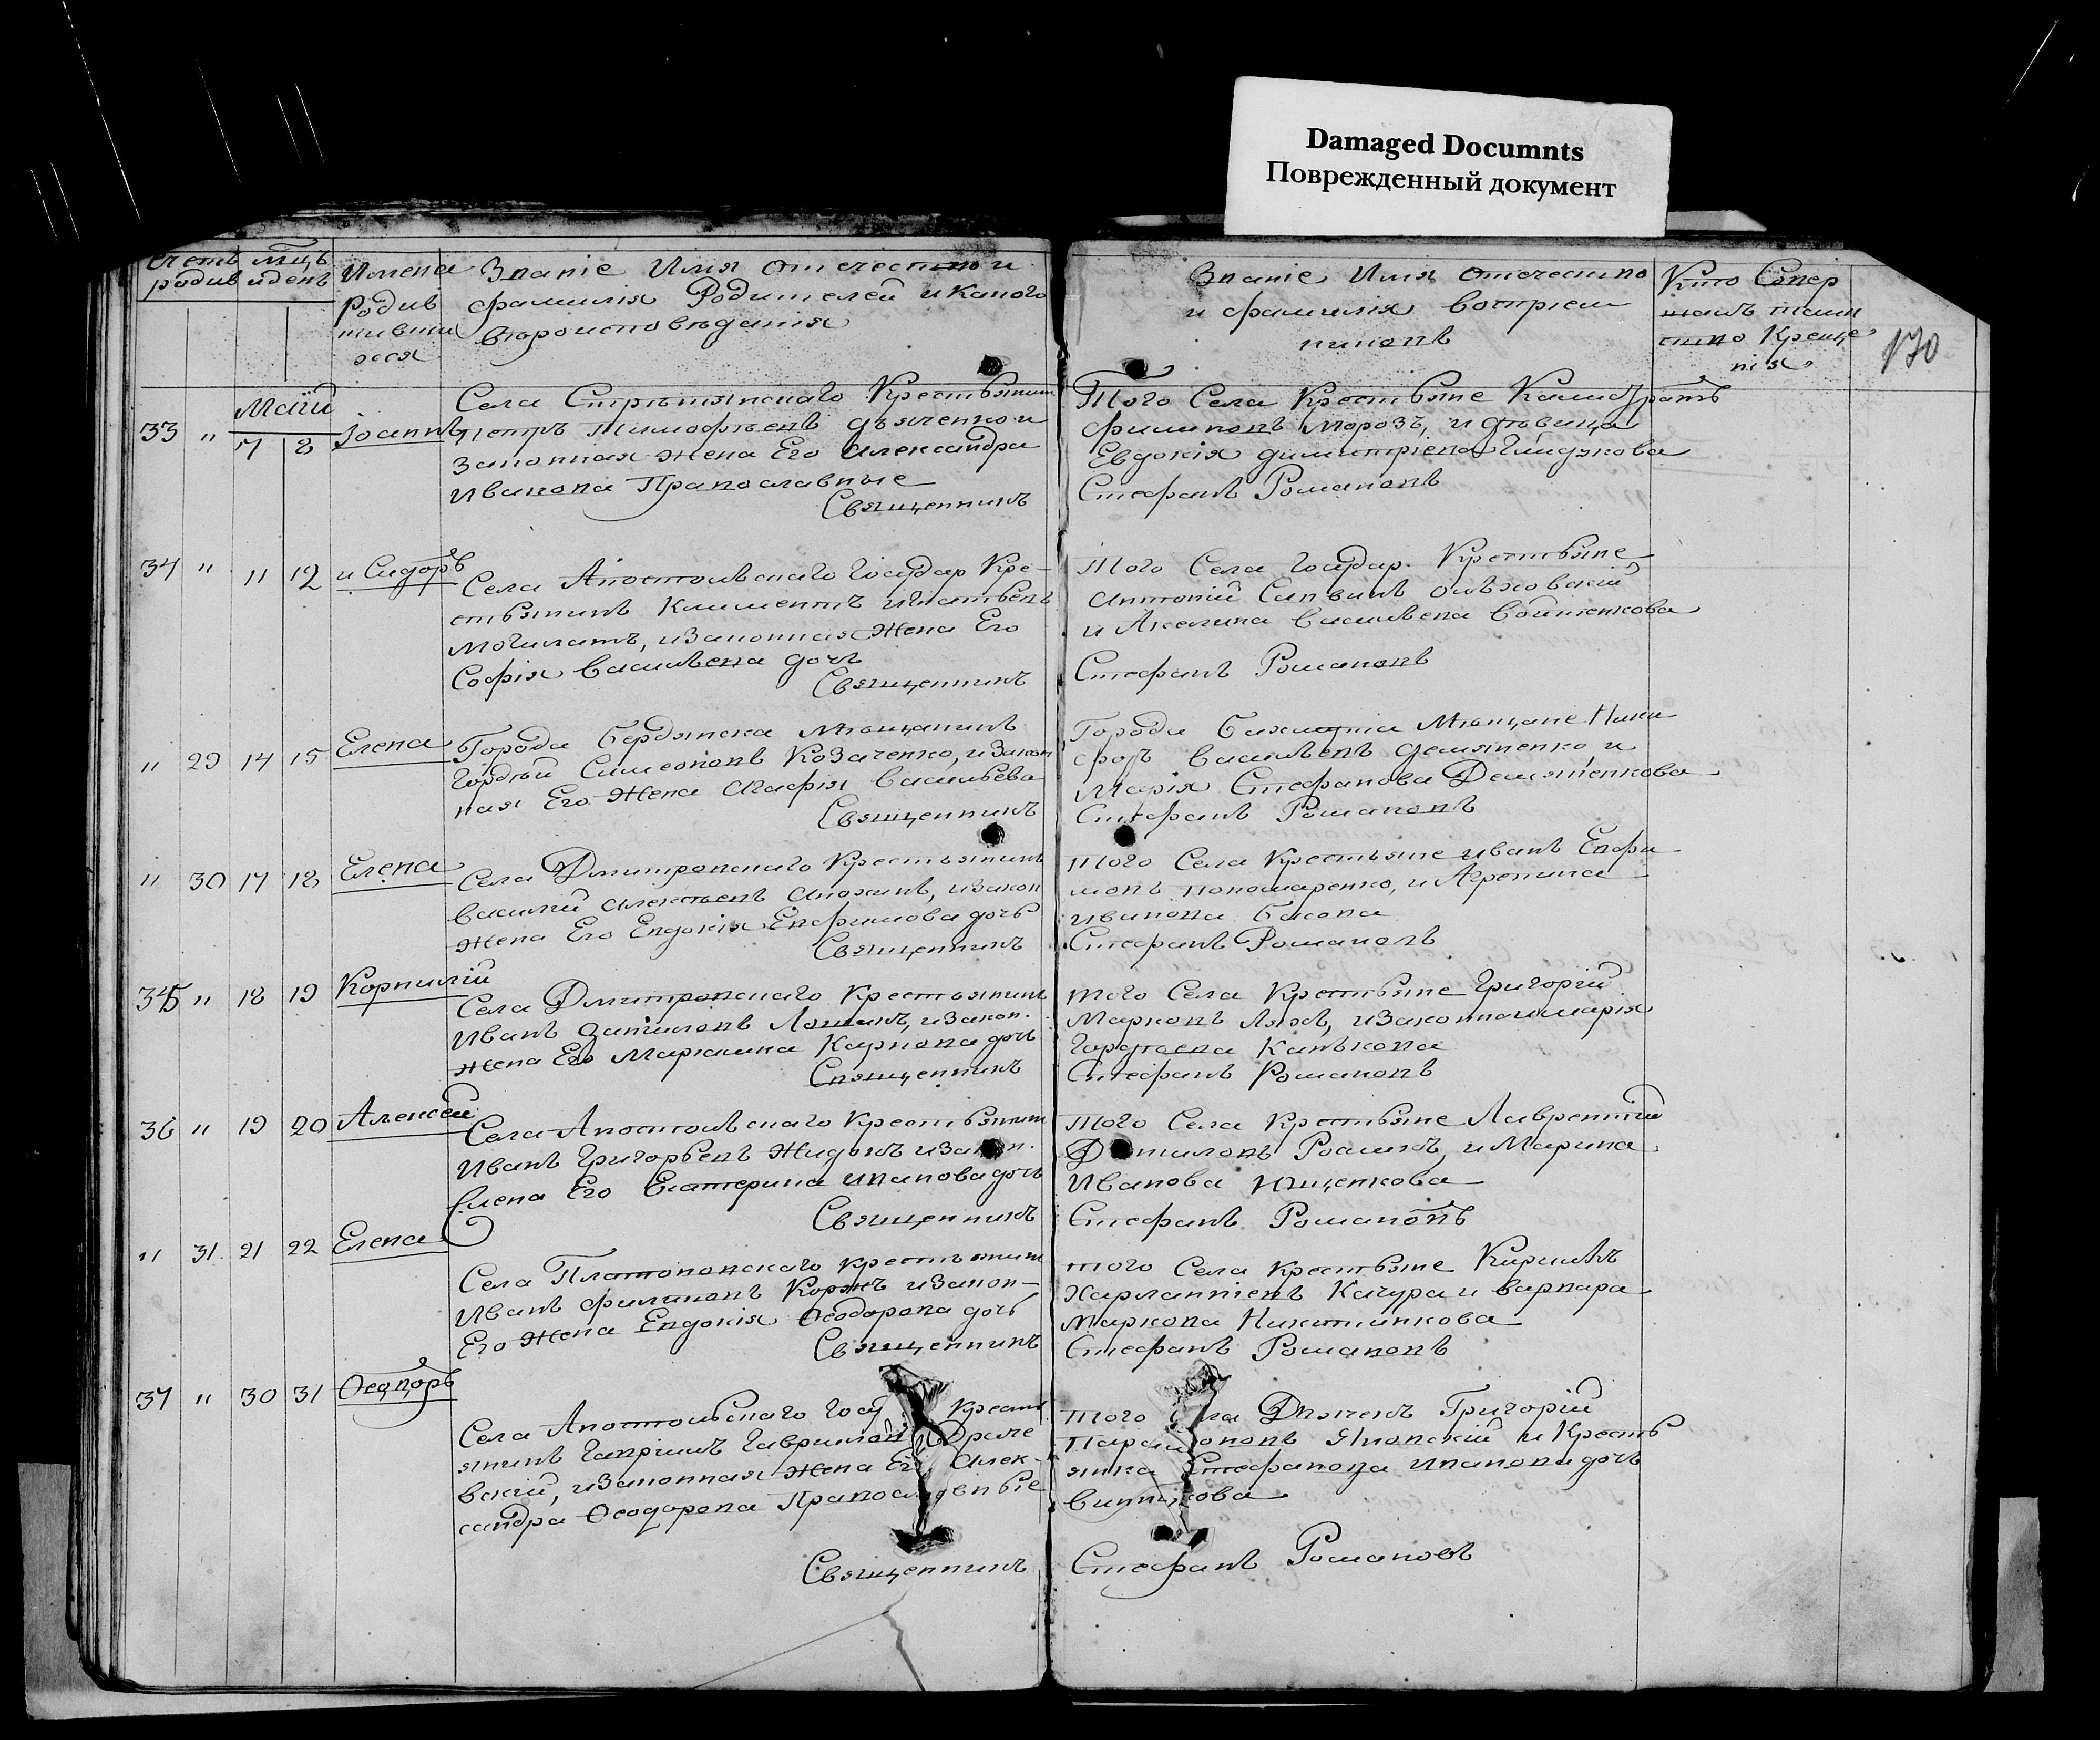 Damaged Documnts
Поврежденный документ
Счетъ родив
мцъ и день
Имена Родив шивши хся
Званіе Имя отечество и
фамилія Родителей и какого
вѣроисповѣданія
Званіе Имя отечество
и фамилія воспріем
никовъ
Кто Совер
шалъ таин
ство Креще
нія
170
Маій
33 " 7 8 Іоаннъ
Села Стрѣтянскаго Крестьянин
Петръ Тимофѣевъ Дьяченко и
Законная жена Его Александра
Иванова Православные
Священникъ
Того Села Крестьяне
Филиповъ Морозъ, и дѣвица
Евдокія Димитріева
Стефанъ Романовъ
34 " 11 12 Исидоръ
Села Апостольскаго Государ Кре-
стьянинъ Климентъ Игнатьевъ
Могилатъ, и Законная Жена Его
Софія Васильева дочь
Священникъ
Того Села Государ. Крестьяне
Антоній Саввинъ Ольховскій
и Акелина Васильева Войтенкова
Стефанъ Романовъ
" 29 14 15 Елена
Города Бердянска Мѣщанинъ
Гордѣй Симеоновъ Козаченко, и Закон
ная Его Жена Агафія Васильева
Священникъ
Города Бахмута Мѣщане Ники
форъ Васильевъ Демяненко и
Марія Стефанова Демяненкова
Стефанъ Романовъ
" 30 17 18 Елена
Села Дмитровскаго Крестьянинъ
Василій Алексѣевъ Анохинъ, и Закон
Жена Его Евдокія Евфимова дочь
Священникъ
того Села Крестьяне Иванъ Евфи
мовъ Пономаренко, и Агрепина
Иванова Басова
Стефанъ Романовъ
345 " 18 19 Корнилій
Села Дмитровскаго Крестьянин
Иванъ Даниловъ Лошакъ, и Закон.
жена Его Маріанна Карпова дочь
Священникъ
того Села Крестьяне Григорій
Марковъ Ляхъ, и Законная Марія
Гордѣева Канькова
Стефанъ Романовъ
36 " 19 20 Алексей
Села Апостольскаго Крестьянин
Иванъ Григорьевъ Жидокъ и Закон.
Жена Его Екатерина Иванова дочь
Священникъ
того Села Крестьяне Лаврентій
Даниловъ Рошикъ, и Марина
Иванова Ищенкова
Стефанъ Романовъ
" 31 21 22 Елена
Села Платоновскаго крестьянин
Иванъ Филиповъ Коржъ и Закон-
Его Жена Евдокія Ѳеодорова дочь
Священникъ
того Села крестьяне Кирилъ
Харлампіевъ Качура и Варвара
Маркова Никитинкова
Стефанъ Романовъ
37 " 30 31 Ѳедоръ
Села Апостольскаго Госу Крест
янинъ Гавриилъ Гавриловъ
вскій, и Законная жена Его Алек-
сандра Ѳеодорова Православные
Священникъ
того Села Дьячекъ Григорій
Парамоновъ Яновскій и Кресть
янка Стефанова Иванова дочь
Стефанъ Романовъ